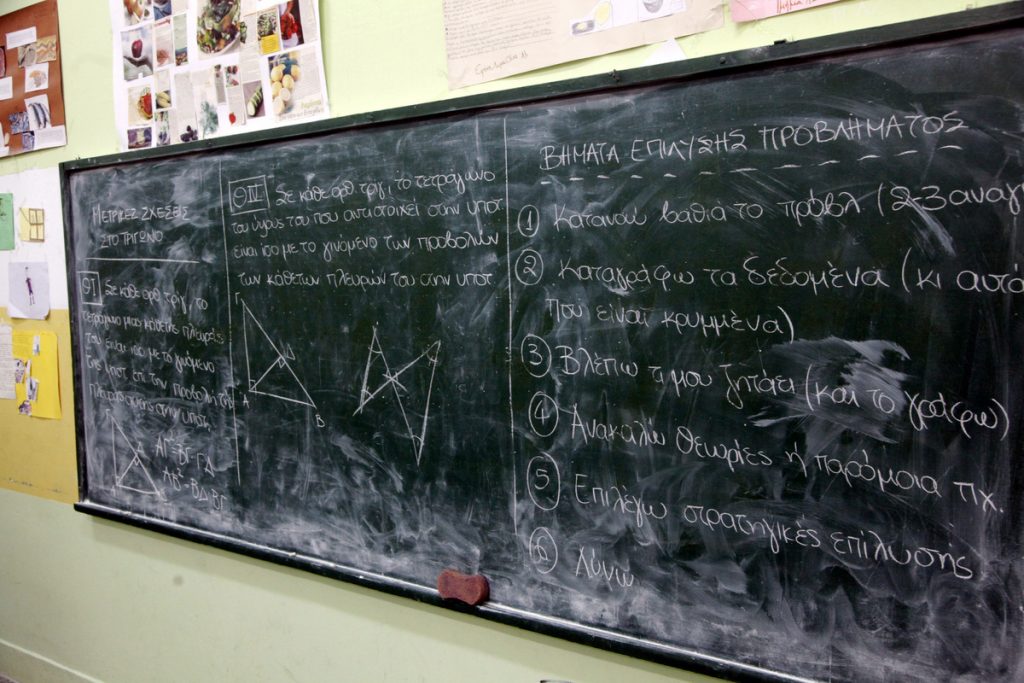 ΜΕΤΡΙΚΕΣ ΣΧΕΣΕΙΣ
ΣΤΟ ΤΡΙΓΩΝΟ
ΘΙ Σε κάθε ορθ τριγ. το
τετράγωνο μιας κάθετης πλευράς
του είναι ίσο με το γινόμενο
της υποτ. επί την προβολή της
πλευράς αυτής στην υποτ.
ΑΓ² = ΒΓ·ΓΔ
ΑΒ² = ΒΔ·ΒΓ
ΘΙΙ Σε κάθε ορθ. τριγ. το τετράγωνο
του ύψους του που αντιστοιχεί στην υποτ
είναι ίσο με το γινόμενο των προβολών
των κάθετων πλευρών του στην υποτ.
Γ
Α
Β
ΒΗΜΑΤΑ ΕΠΙΛΥΣΗΣ ΠΡΟΒΛΗΜΑΤΟΣ
1 Κατανοώ βαθιά το πρόβλ (2-3 αναγ
2 Καταγράφω τα δεδομένα (κι αυτά
που είναι κρυμμένα)
3 Βλέπω τι μου ζητάει (και το γράφω)
4 Ανακαλώ θεωρίες ή παρόμοια πχ.
5 Επιλέγω στρατηγικές επίλυσής
6 Λύνω